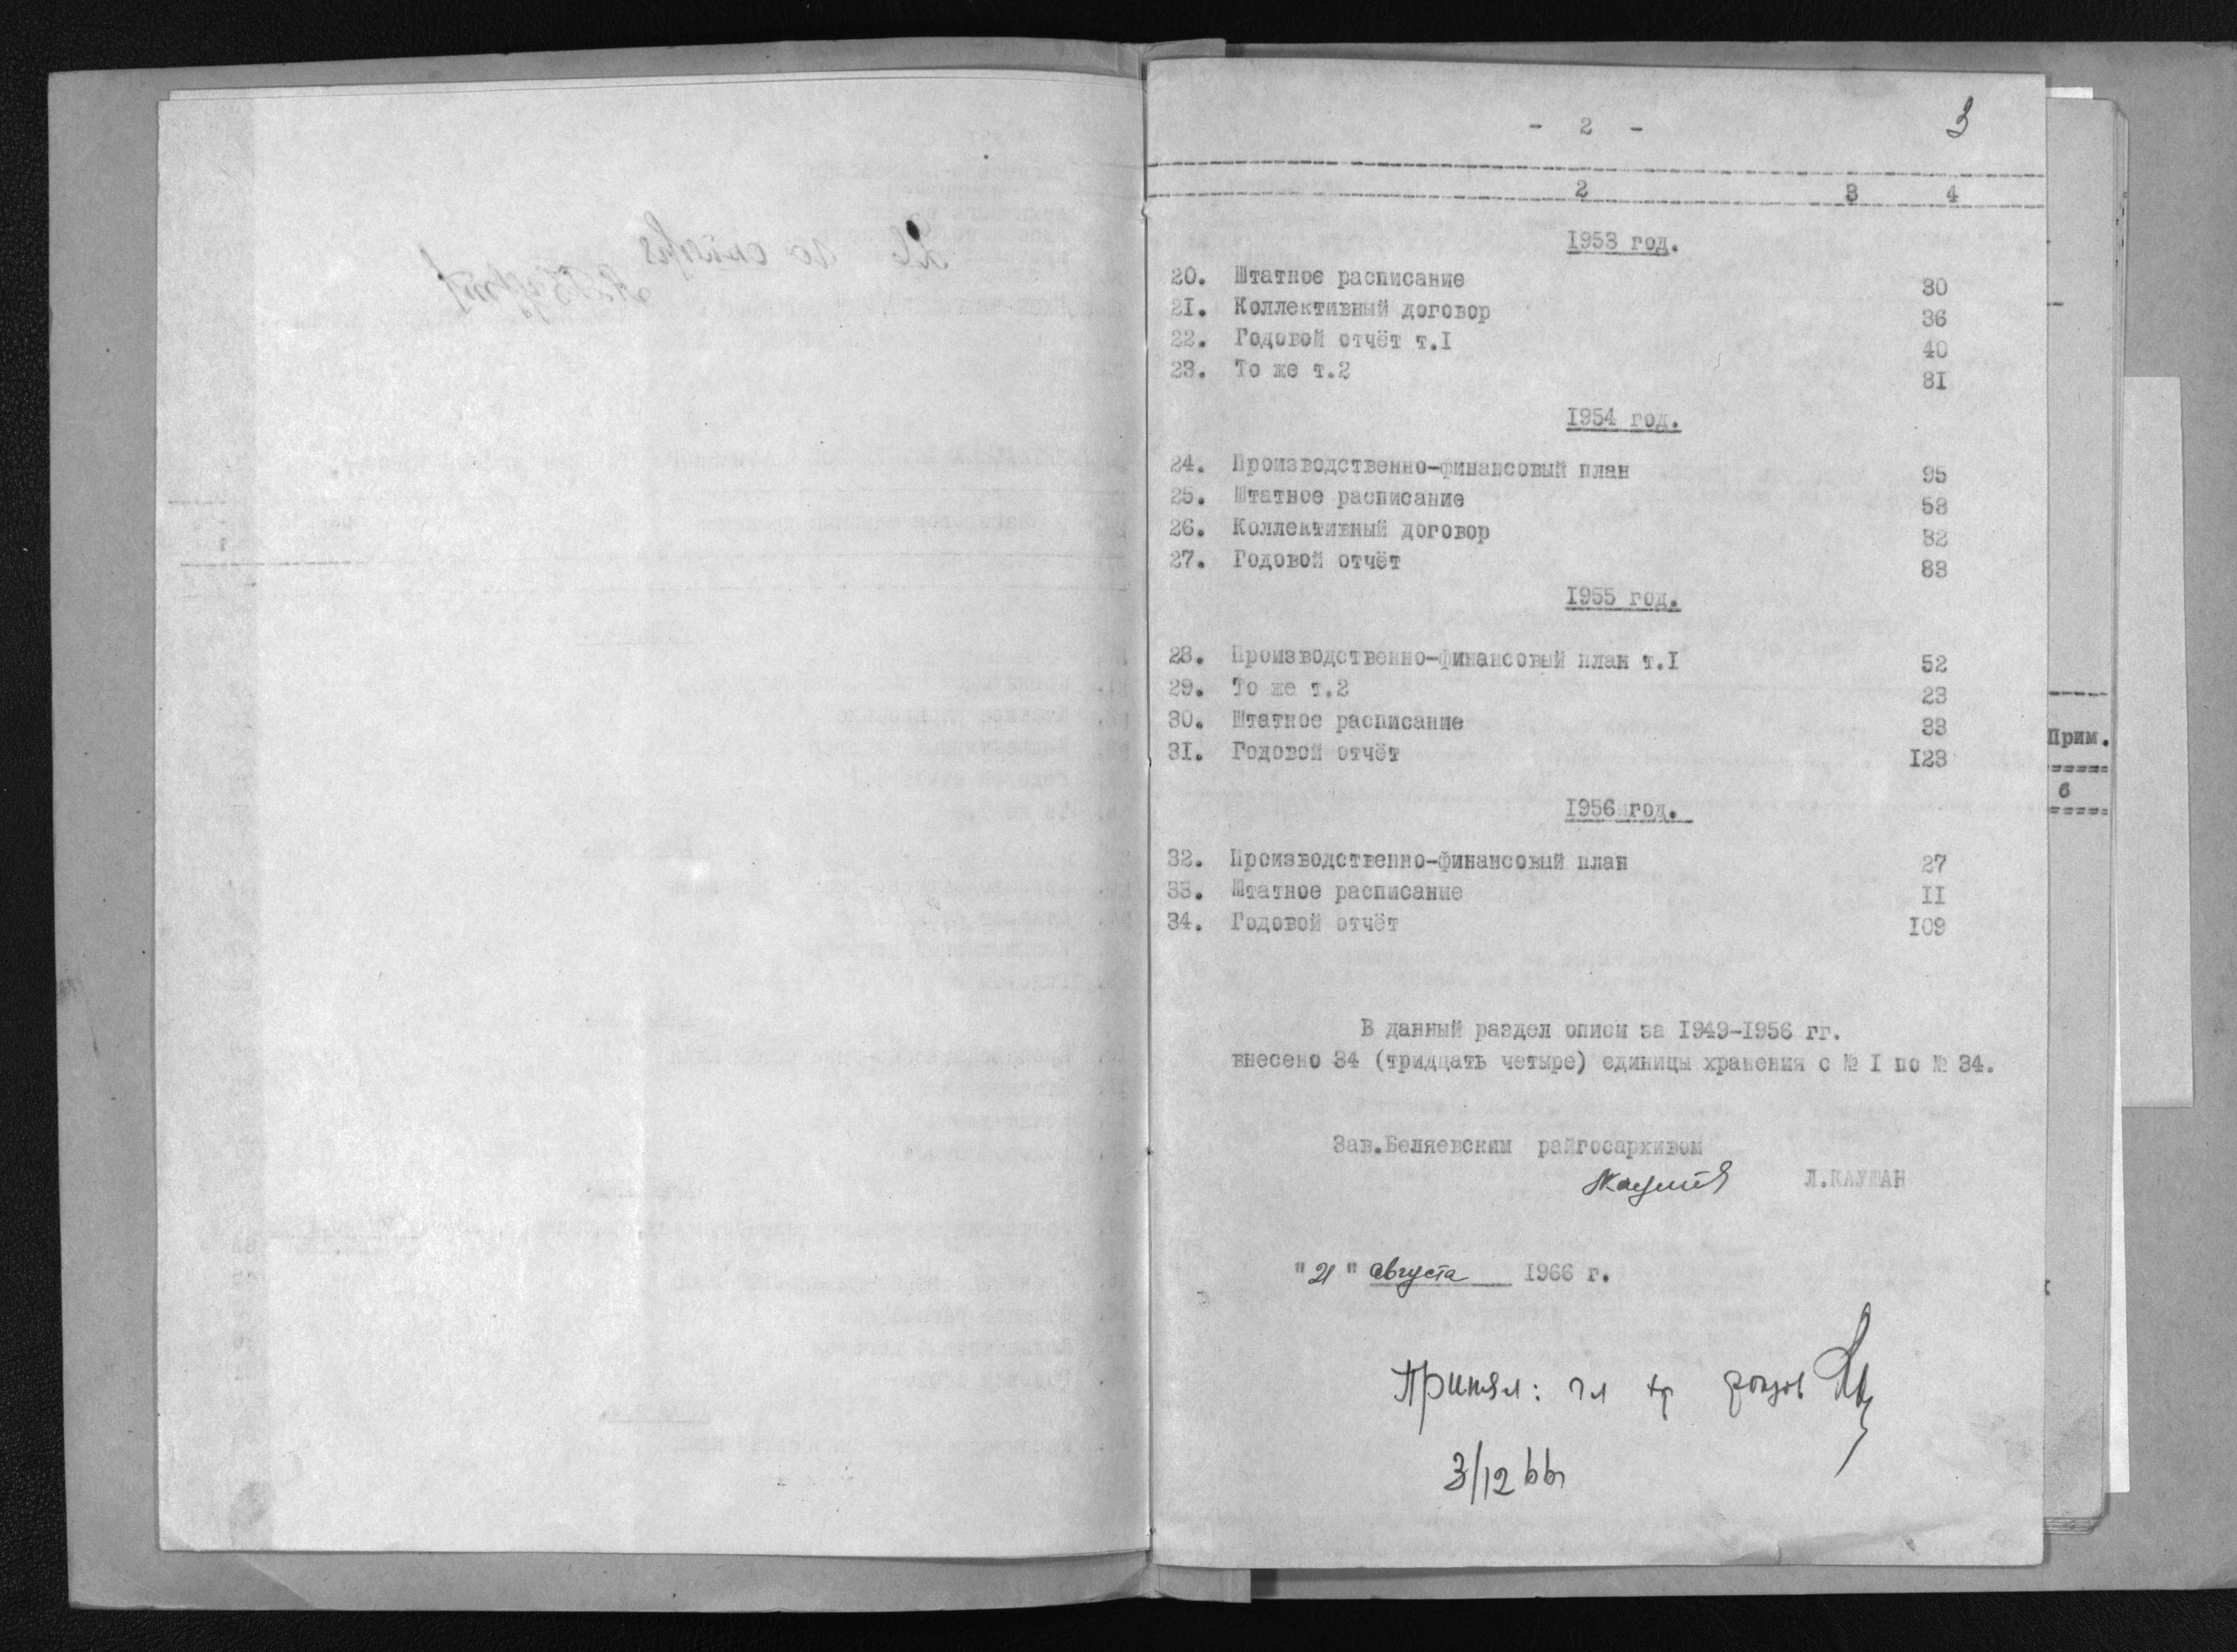 3
- 2 -
2 3 4
1953 год.
20. Штатное расписание 30
21. Коллективный договор 36
22. Годовой отчёт т.I 40
23. То же т.2 31
1954 год.
24. Производственно-финансовый план 95
25. Штатное расписание 53
26. Коллективный договор 32
27. Годовой отчёт 83
1955 год.
28. Производственно-финансовый план т.I 52
29. То же т.2 23
30. Штатное расписание 33
31. Годовой отчёт 123
1956 год.
32. Производственно-финансовый план 27
33. Штатное расписание II
34. Годовой отчёт 109
В данный раздел описи за 1949-1956 гг.
внесено 34 (тридцать четыре) единицы хранения с № I по № 34.
Зав.Беляевским райгосархивом
Л.КАУШАН
"21" августа 1966 г.
Принял: гл
3/12 66
Прим.
6